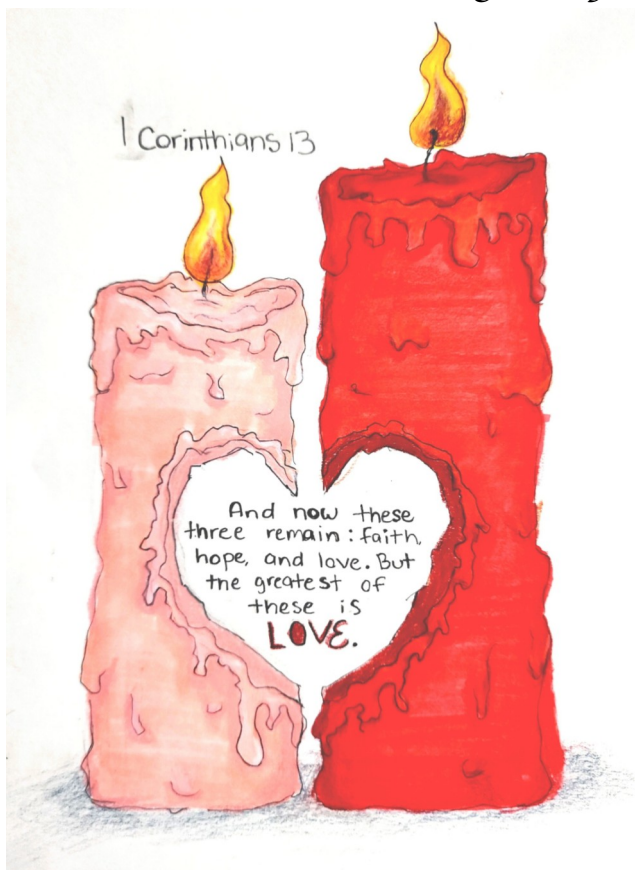 1 Corinthians 13
And now these
three remain: faith,
hope, and love. But
the greatest of
these is
LOVE.